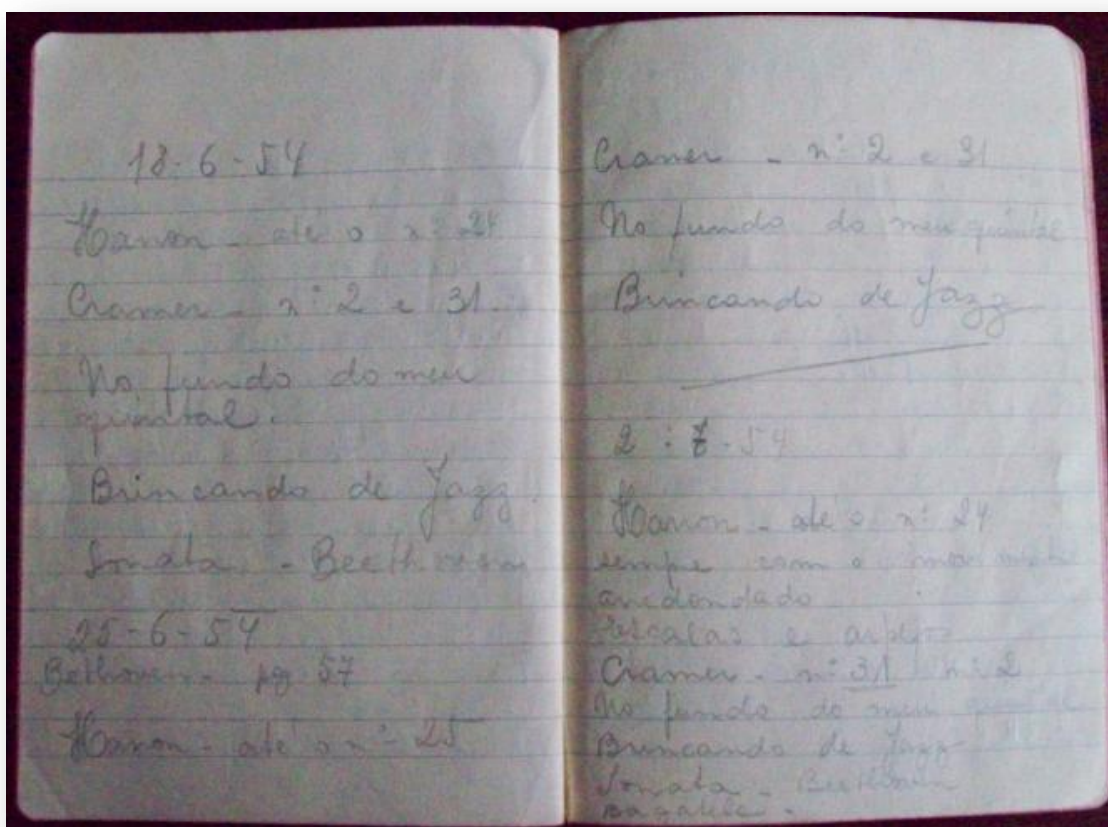 18-6-54
Hanon - até o nº 24
Cramer - nº 2 e 31.
No fundo do meu
quintal.
Brincando de Jazz.
Sonata - Beethoven
25-6-54
Bethoven - pg 57
Hanon - até o nº 25
Cramer - nº 2 e 31
No fundo do meu quintal
Brincando de Jazz
2-7-54
Hanon - até o nº 24
sempre com o
aredondado
Escalas e
Cramer - nº 31 nº 2
No fundo do meu quintal
Brincando de Jazz
Sonata - Beethoven